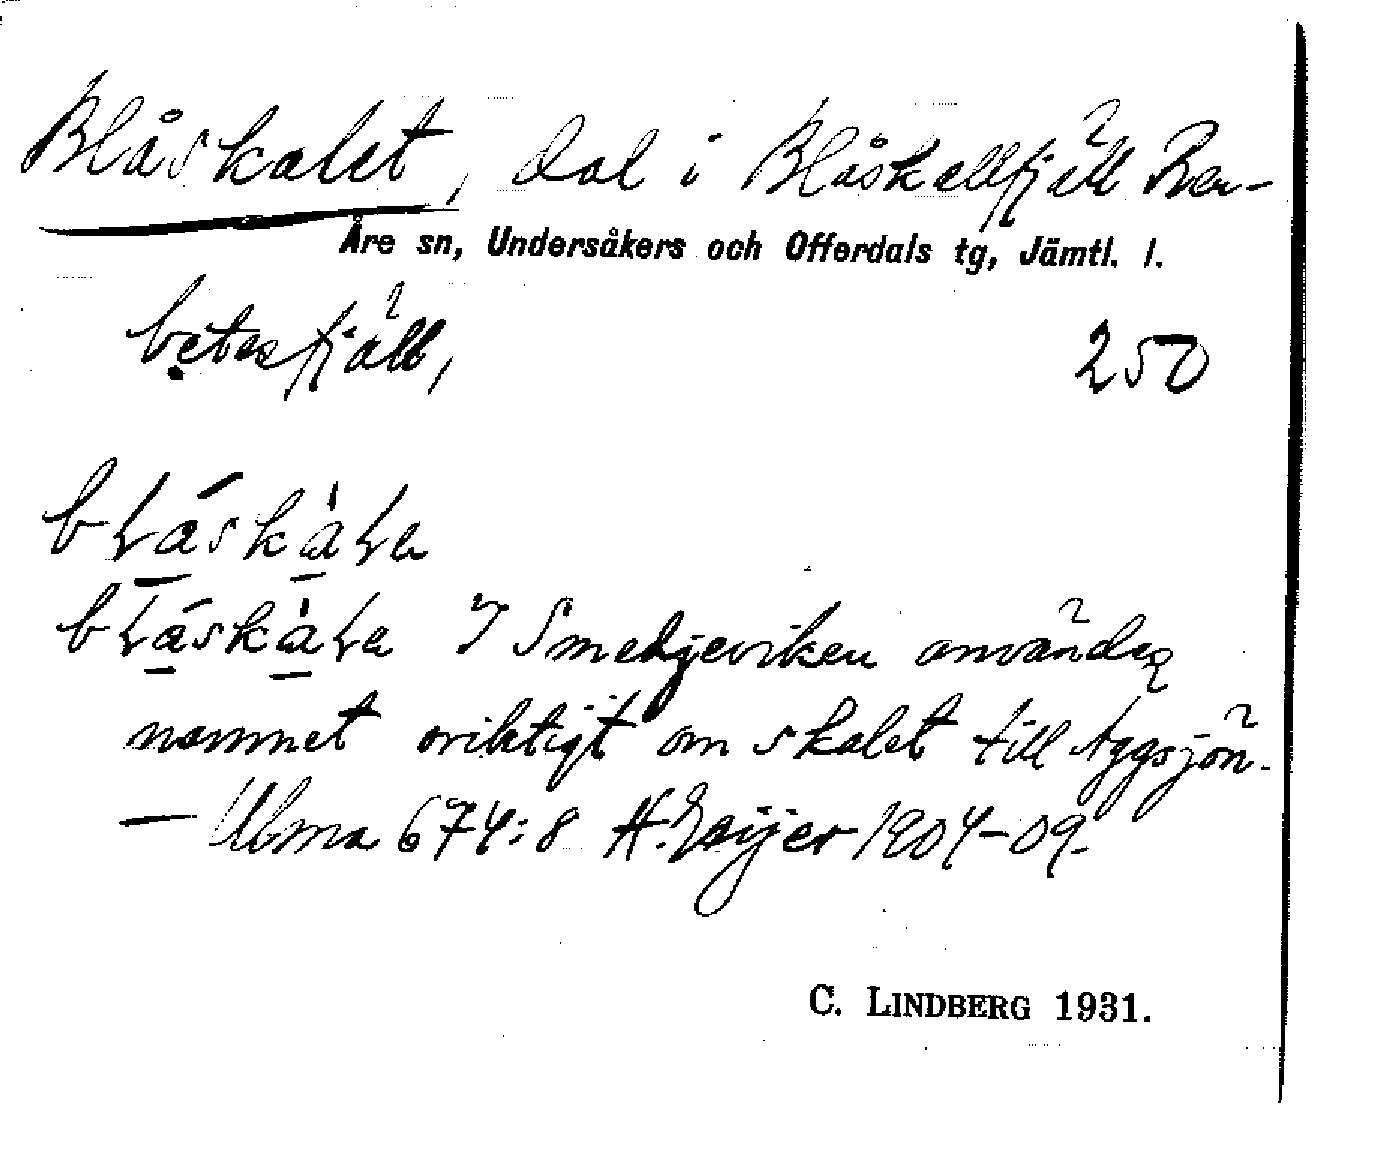 Blåskalet, dal i Blåskallfjäll Ren-
Åre sn, Undersåkers och Offerdals tg, Jämtl. l.
betesfjäll, 250
I Smedjeviken användes
namnet oriktigt om skalet till Äggsjön.
— Ulma 674:8 H. Geijer 1904-09.
C. LINDBERG 1931.